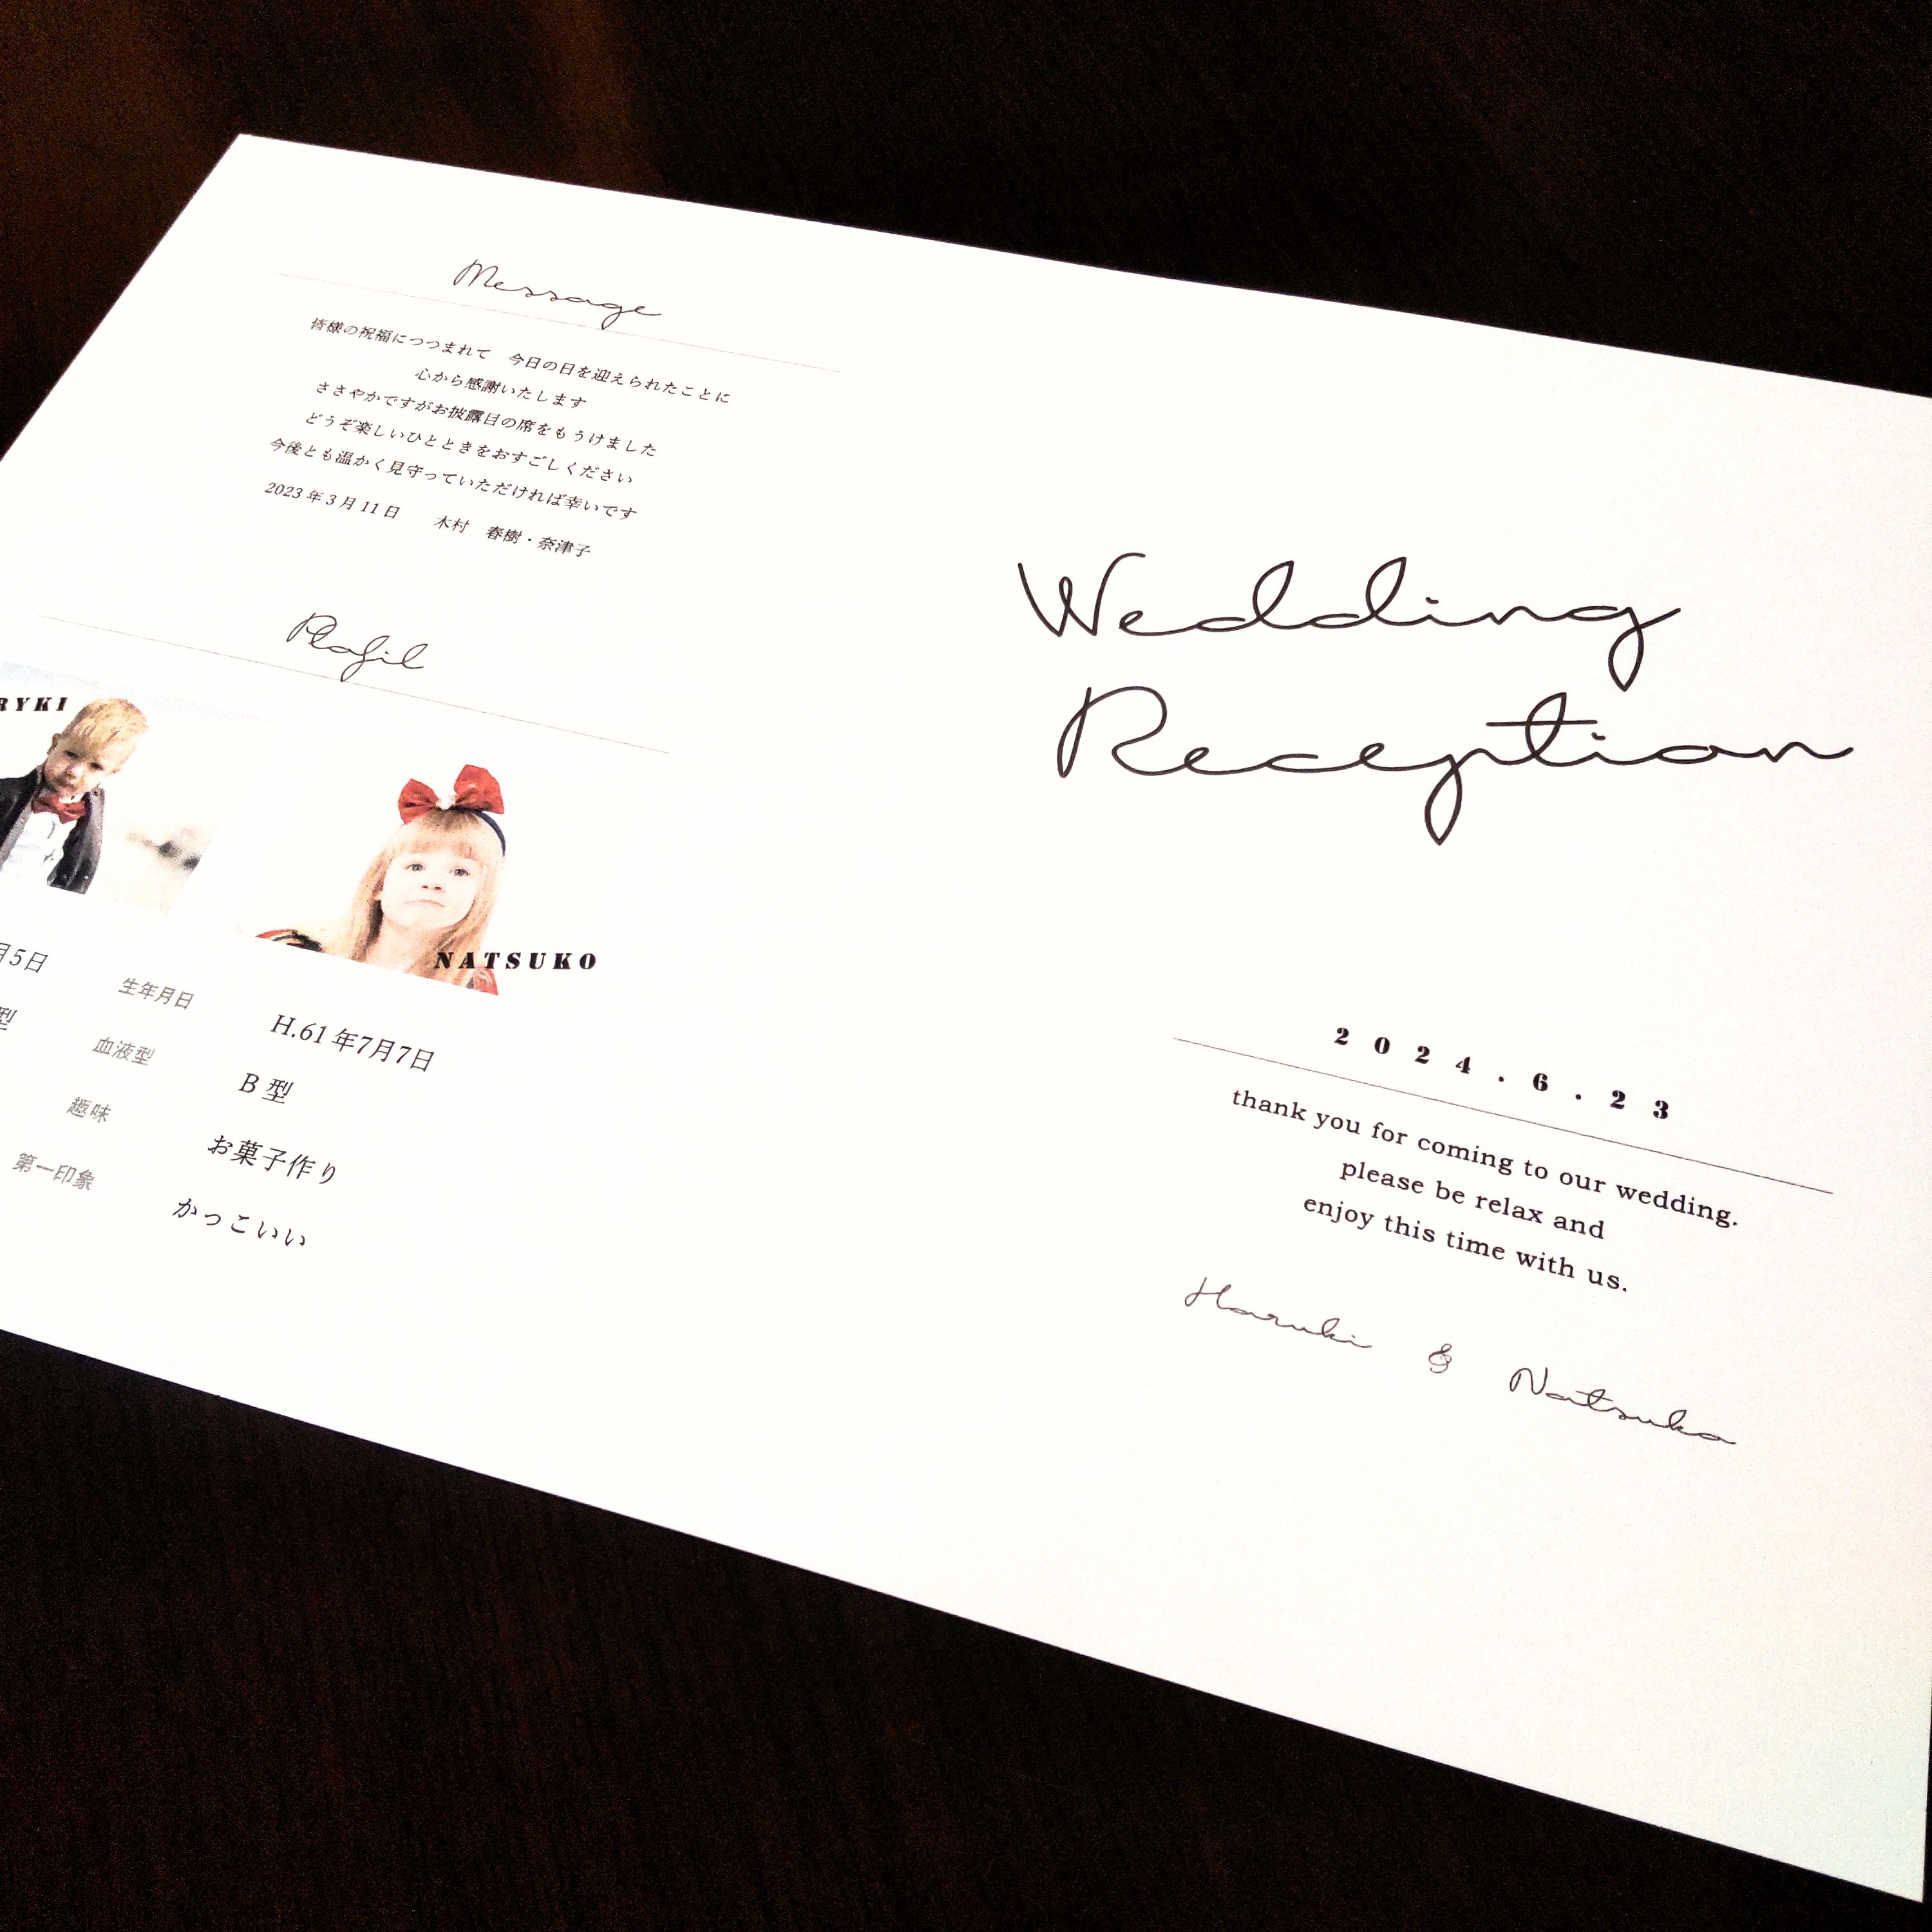 Message
皆様の祝福につつまれて　今日の日を迎えられたことに
心から感謝いたします
ささやかですがお披露目の席をもうけました
どうぞ楽しいひとときをおすごしください
今後とも温かく見守っていただければ幸いです
2023年3月11日　木村　春樹・奈津子
Plofil
RYKI
NATSUKO
月5日　生年月日　H.61年7月7日
型　血液型　B型
趣味　お菓子作り
第一印象　かっこいい
Wedding
Reception
2024.6.23
thank you for coming to our wedding.
please be relax and
enjoy this time with us.
Haruki & Natsuko